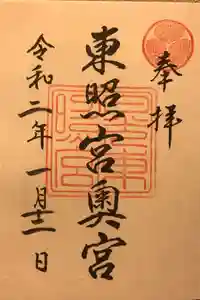 奉拝
東照宮奥宮
令和二年一月十一日